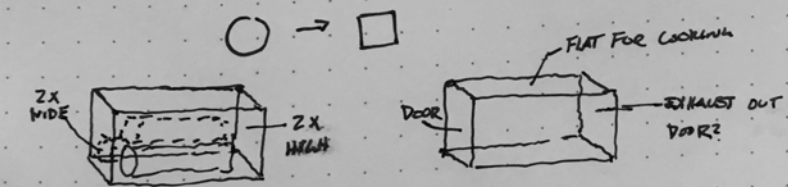 2X
WIDE
2X
HIGH
FLAT FOR COOKING
DOOR
EXHAUST OUT
DOOR?